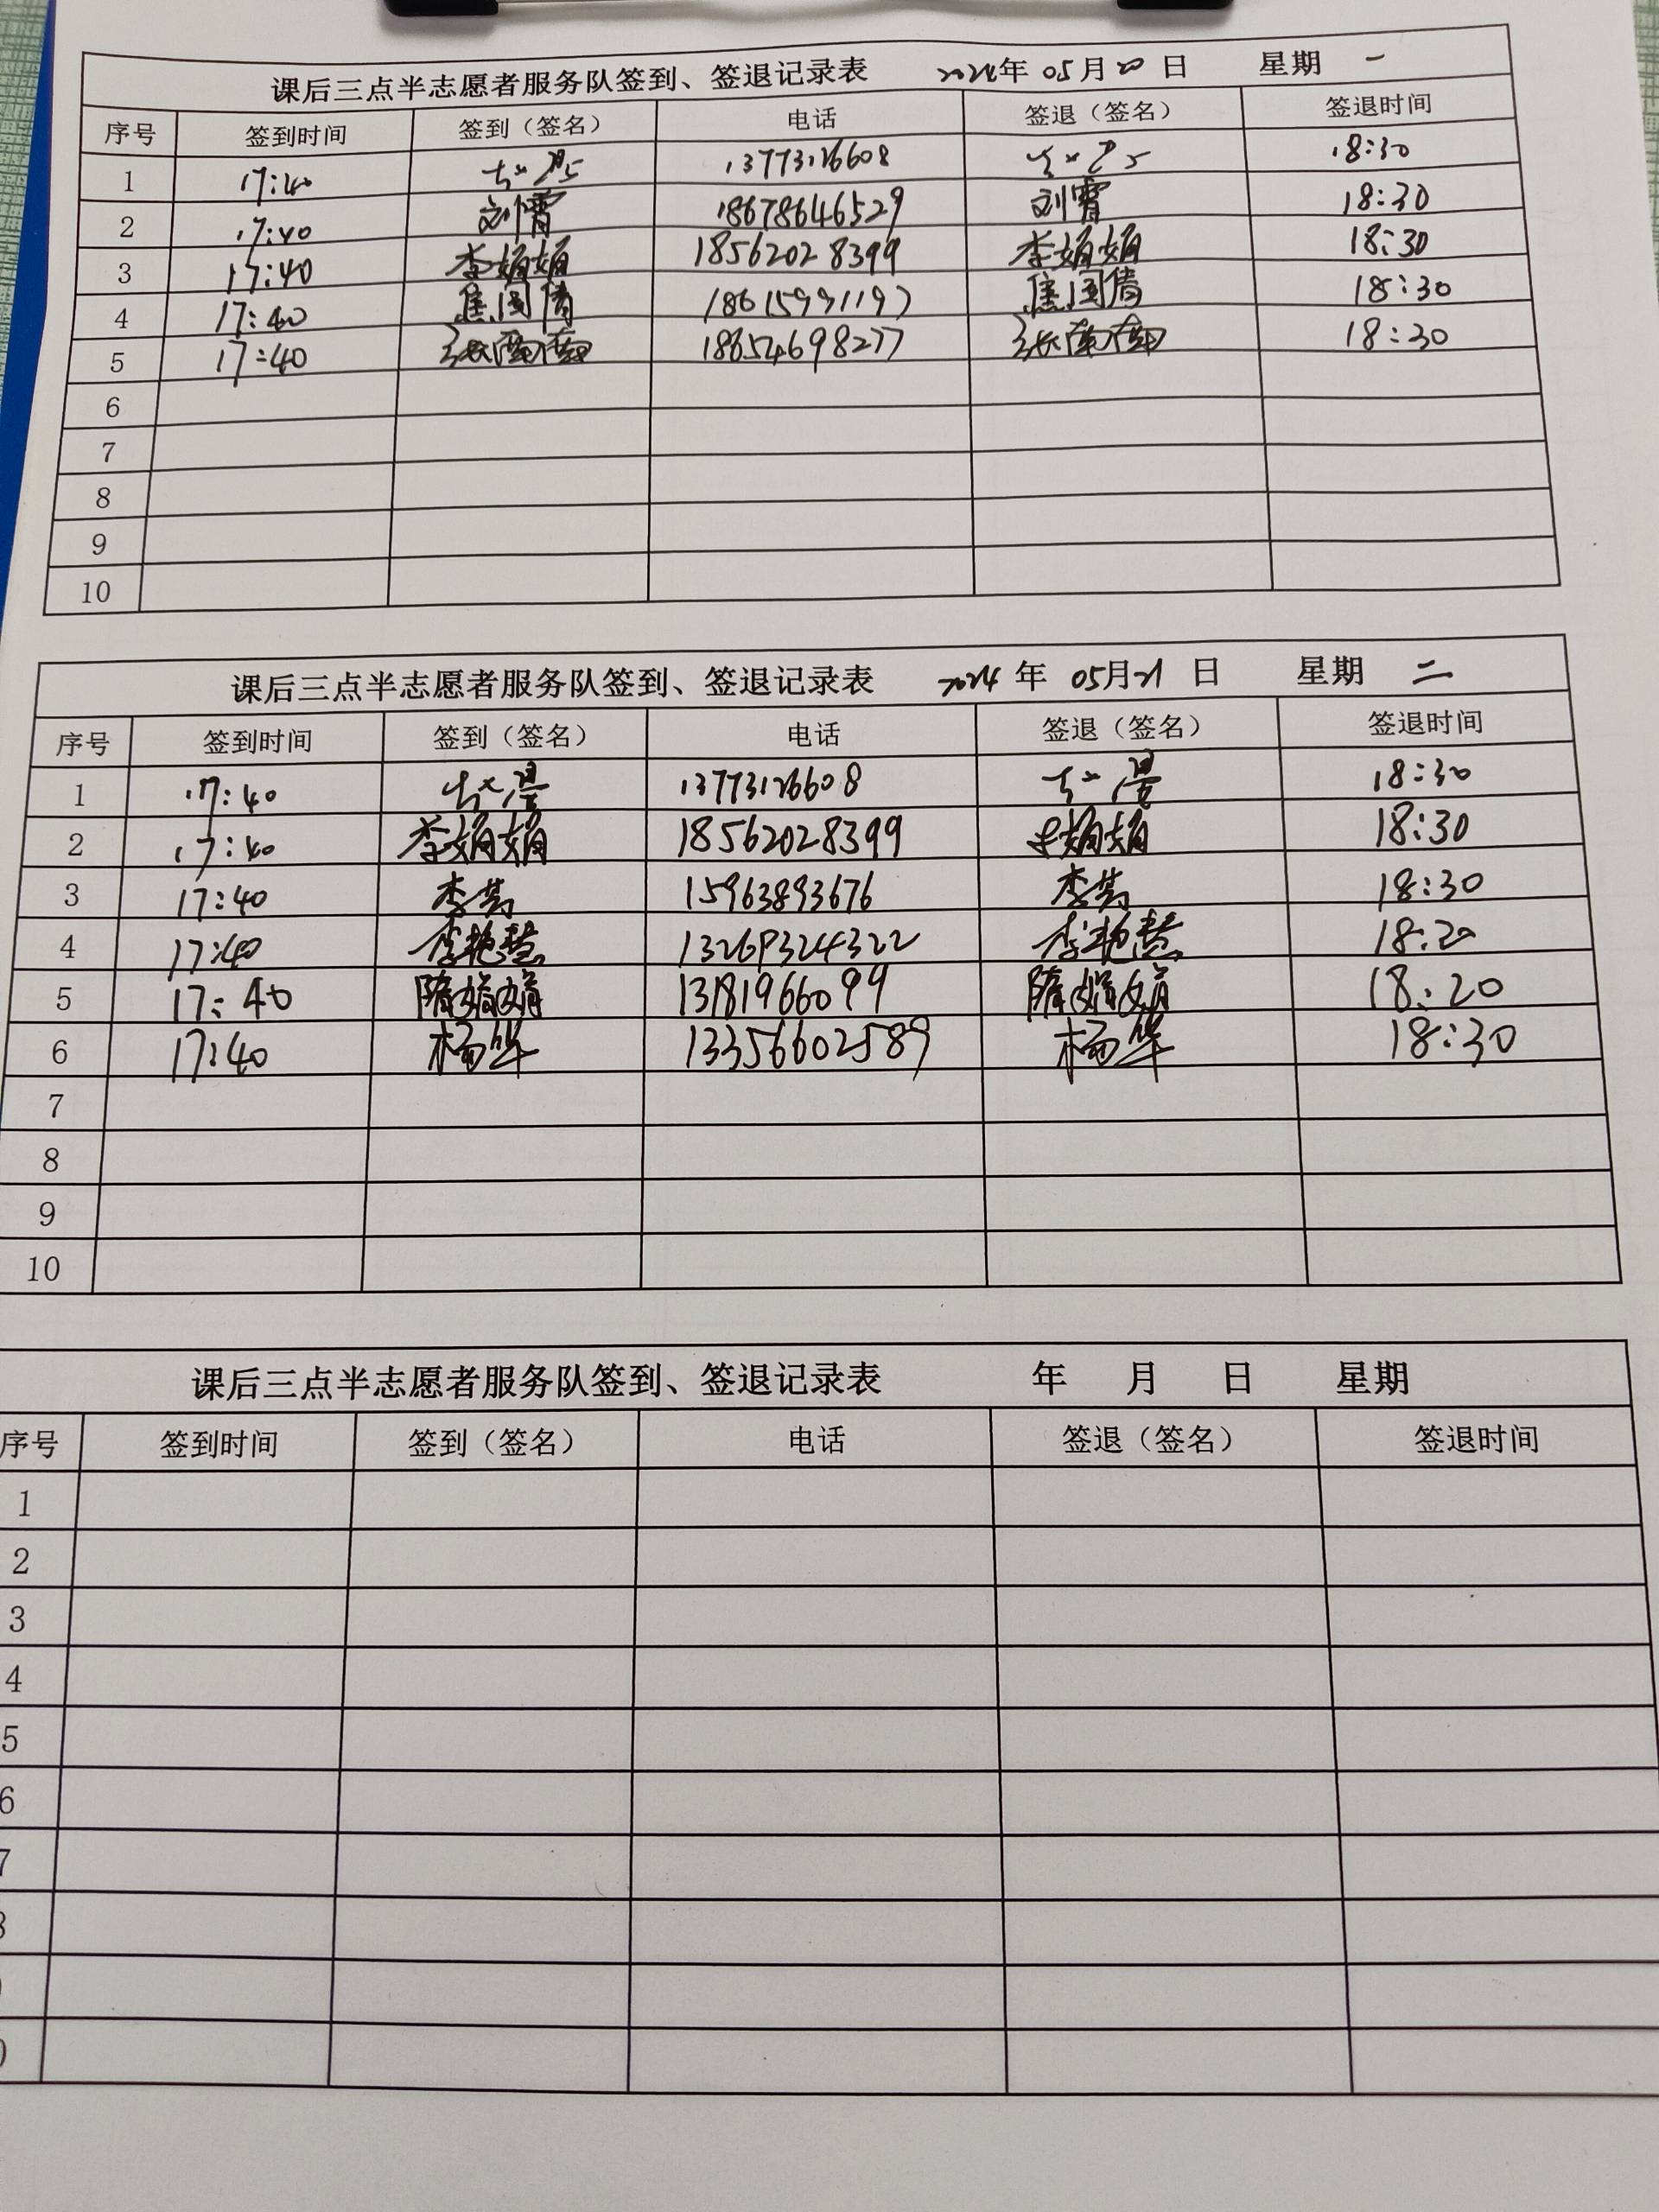 课后三点半志愿者服务队签到、签退记录表 2024年 05月 20 日 星期 一
序号 签到时间 签到（签名） 电话 签退（签名） 签退时间
1 17:40 13773126608 18:30
2 17:40 刘霄 18678646529 刘霄 18:30
3 17:40 李娟娟 18562028399 李娟娟 18:30
4 17:40 18615991197 18:30
5 17:40 张南南 18654698277 张南南 18:30
6
7
8
9
10
课后三点半志愿者服务队签到、签退记录表 2024 年 05月21 日 星期 二
序号 签到时间 签到（签名） 电话 签退（签名） 签退时间
1 17:40 13773126608 18:30
2 17:40 李娟娟 18562028399 李娟娟 18:30
3 17:40 李芸 15963893676 李芸 18:30
4 17:40 李艳慧 13269324322 李艳慧 18:20
5 17:40 隋娟娟 13181966099 隋娟娟 18:20
6 17:40 杨华 13356602589 杨华 18:30
7
8
9
10
课后三点半志愿者服务队签到、签退记录表 年 月 日 星期
序号 签到时间 签到（签名） 电话 签退（签名） 签退时间
1
2
3
4
5
6
7
8